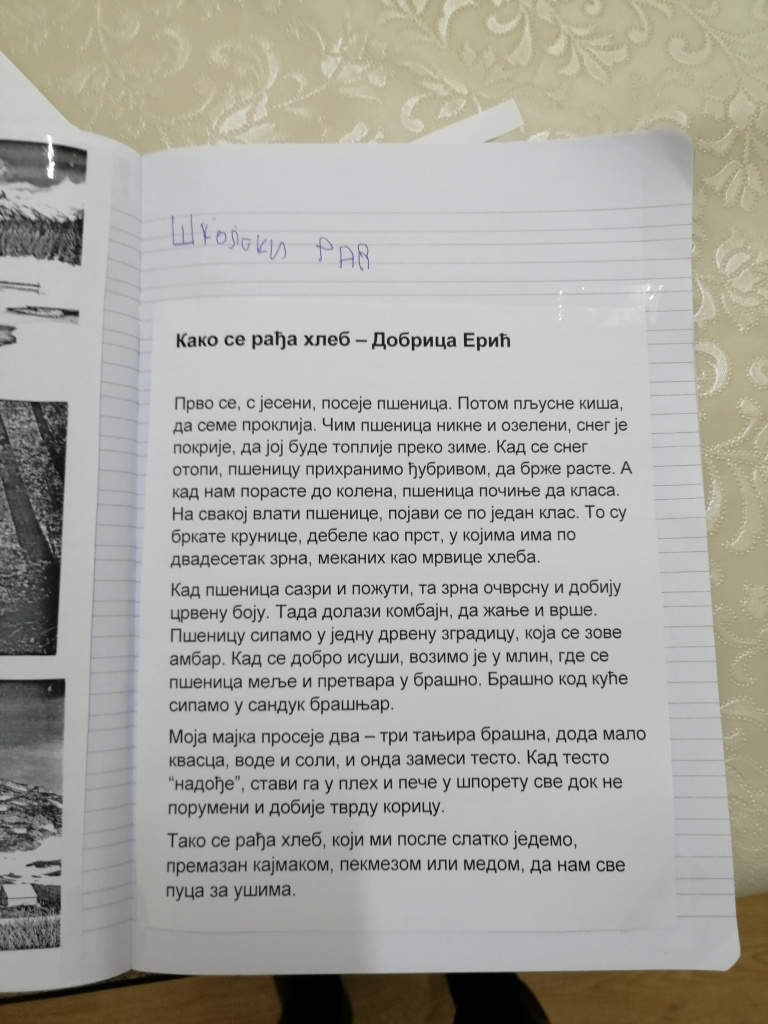 Школски РАД
Како се рађа хлеб – Добрица Ерић
Прво се, с јесени, посеје пшеница. Потом пљусне киша,
да семе проклија. Чим пшеница никне и озелени, снег је
покрије, да јој буде топлије преко зиме. Кад се снег
отопи, пшеницу прихранимо ђубривом, да брже расте. А
кад нам порасте до колена, пшеница почиње да класа.
На свакој влати пшенице, појави се по један клас. То су
бркате крунице, дебеле као прст, у којима има по
двадесетак зрна, меканих као мрвице хлеба.
Кад пшеница сазри и пожути, та зрна очврсну и добију
црвену боју. Тада долази комбајн, да жање и врше.
Пшеницу сипамо у једну дрвену зградицу, која се зове
амбар. Кад се добро исуши, возимо је у млин, где се
пшеница меље и претвара у брашно. Брашно код куће
сипамо у сандук брашњар.
Моја мајка просеје два – три тањира брашна, дода мало
квасца, воде и соли, и онда замеси тесто. Кад тесто
“надође”, стави га у плех и пече у шпорету све док не
порумени и добије тврду корицу.
Тако се рађа хлеб, који ми после слатко једемо,
премазан кајмаком, пекмезом или медом, да нам све
пуца за ушима.